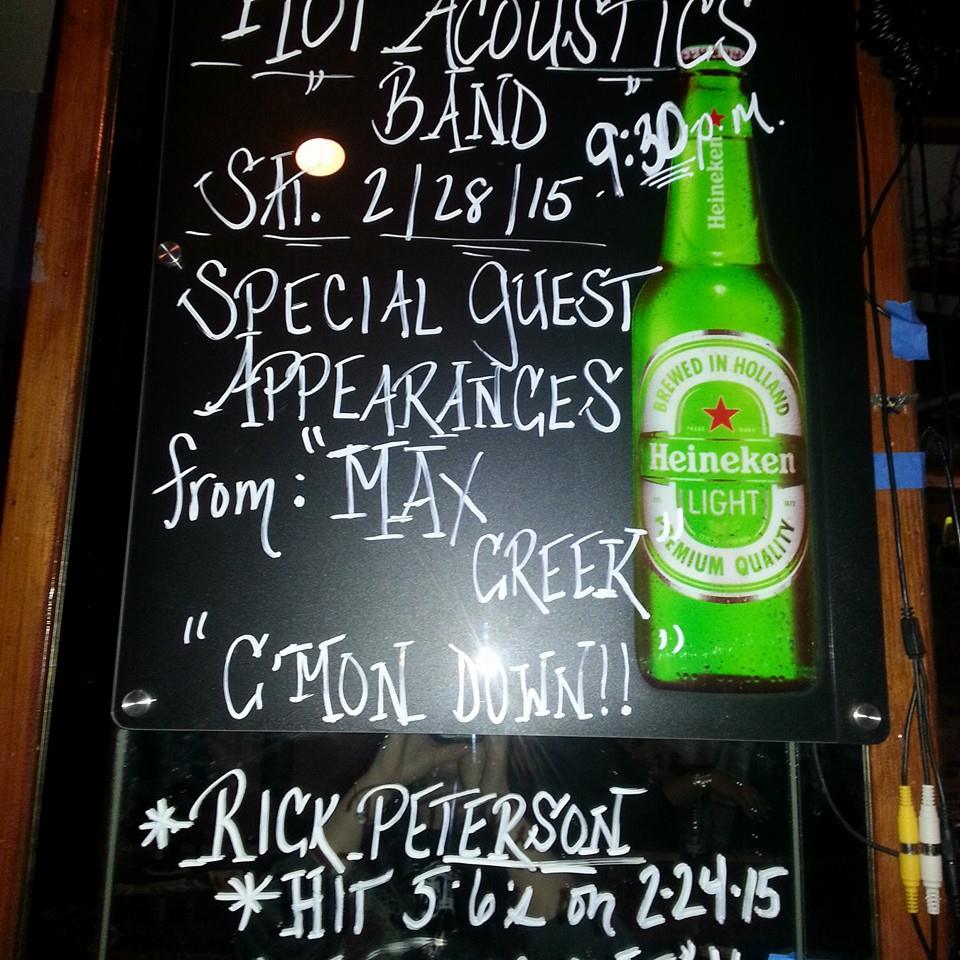 HOT ACOUSTICS
" BAND "
9:30 p.M.
SAT. 2/28/15
SPECIAL GUEST
APPEARANCES
from: "MAX
CREEK"
"C'MON DOWN!!"
Heineken
BREWED IN HOLLAND
Heineken
LIGHT
PREMIUM QUALITY
* RICK PETERSON
* HIT 5·6's on 2·24·15